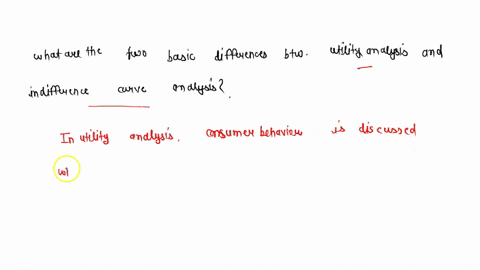 what are the two basic differences btw. utility analysis and
indifference curve analysis?
In utility analysis, consumer behaviour is discussed
wi